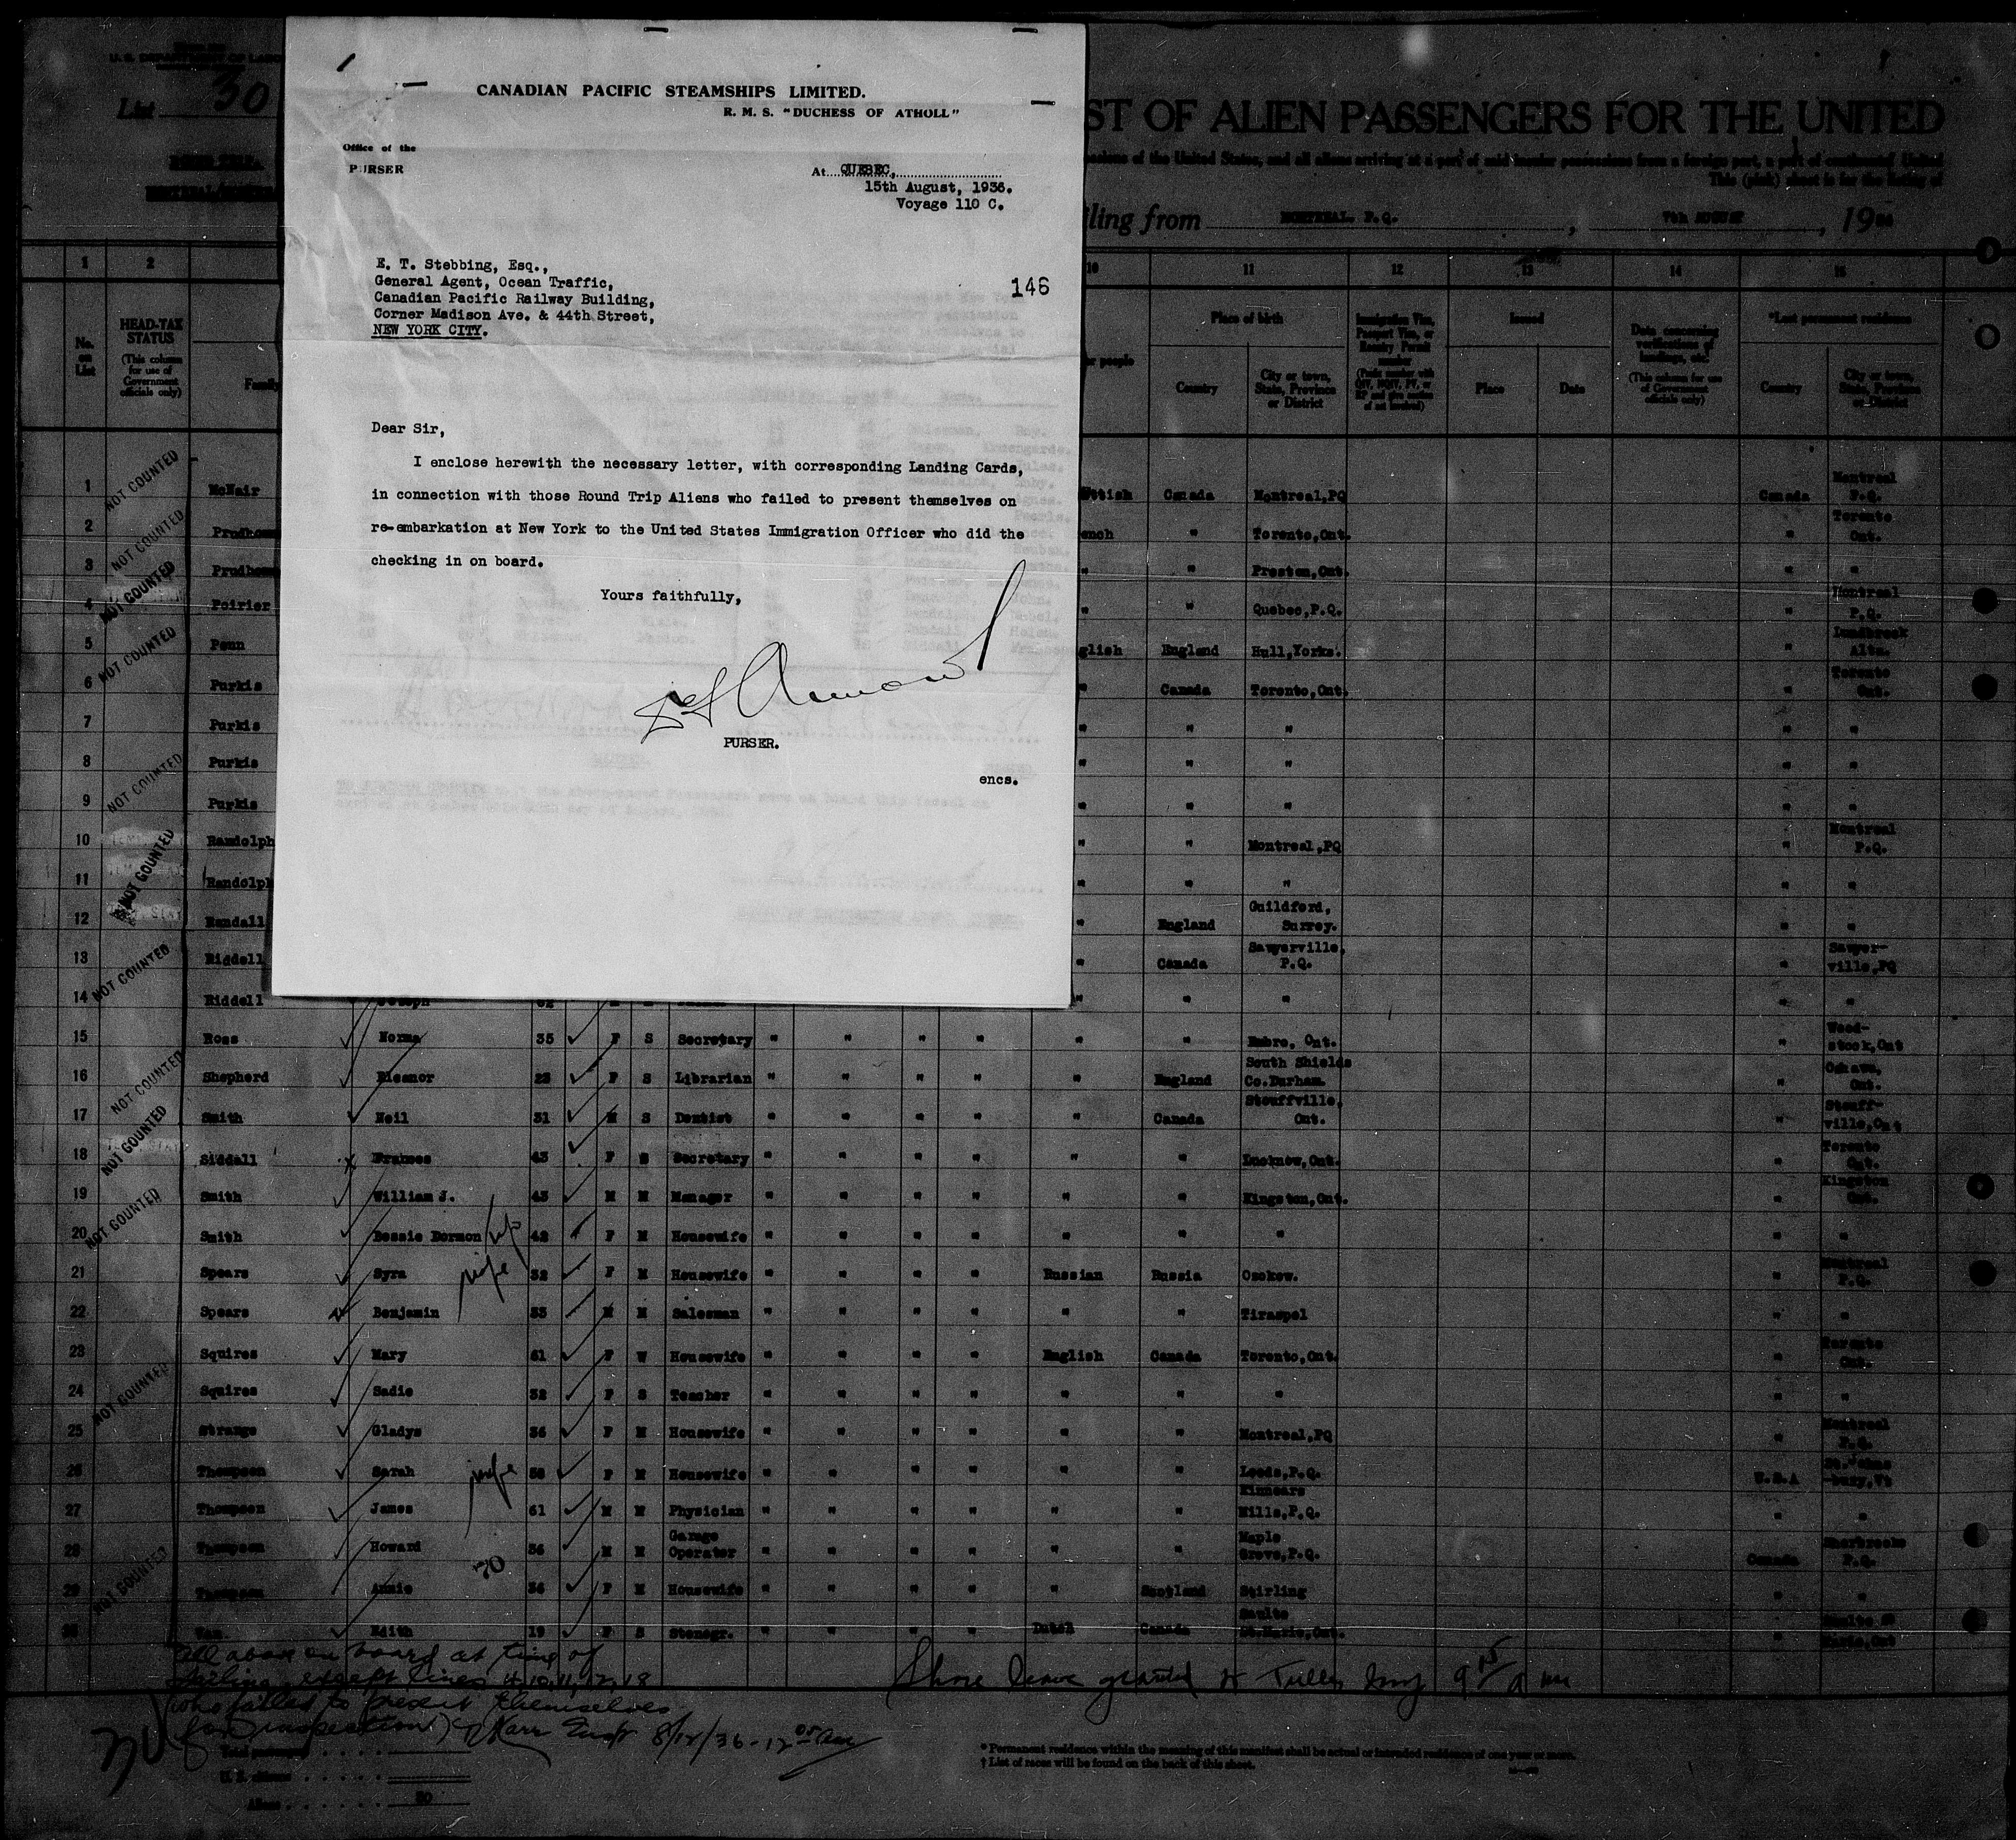 List 30
CANADIAN PACIFIC STEAMSHIPS LIMITED.
R. M. S. "DUCHESS OF ATHOLL"
Office of the
PURSER
At QUEBEC,
15th August, 1936.
Voyage 110 C.
E. T. Stebbing, Esq.,
General Agent, Ocean Traffic,
Canadian Pacific Railway Building,
Corner Madison Ave. & 44th Street,
NEW YORK CITY.
146
Dear Sir,
I enclose herewith the necessary letter, with corresponding Landing Cards,
in connection with those Round Trip Aliens who failed to present themselves on
re-embarkation at New York to the United States Immigration Officer who did the
checking in on board.
Yours faithfully,
PURSER.
encs.
ST OF ALIEN PASSENGERS FOR THE UNITED
This (pink) sheet is for the listing of
ling from MONTREAL, P.Q. , 7th AUGUST , 19
1 2 10 11 12 13 14 15
No. on List
HEAD-TAX STATUS
(This column for use of Government officials only)
Family
people
Place of birth
Country
City or town, State, Province or District
Issued
Place
Date
(This column for use of Government officials only)
*Last permanent residence
Country
City or town, State, Province or District
1 NOT COUNTED McNair ttish Canada Montreal,PQ Canada Montreal P.Q.
2 NOT COUNTED ench " Toronto,Ont. " Toronto Ont.
3 NOT COUNTED " " Preston,Ont. " "
4 Poirier " " Quebec,P.Q. " Montreal P.Q.
5 NOT COUNTED Penn glish England Hull,Yorks. " Alta.
6 Purkis " Canada Toronto,Ont. " Toronto Ont.
7 Purkis " " " " "
8 NOT COUNTED Purkis " " " " "
9 Purkis " " " " "
10 Randolph " " Montreal,PQ " Montreal P.Q.
11 NOT COUNTED Randolph " " " " "
12 Randall " England Guildford, Surrey. " "
13 NOT COUNTED Riddell " Canada Sawyerville, P.Q. " Sawyer-ville,PQ
14 Riddell Joseph " " " " "
15 Ross Norma 35 F S Secretary " " " " " " Embro, Ont. " Wood-stock,Ont
16 NOT COUNTED Shepherd Eleanor 23 F S Librarian " " " " " England South Shields Co.Durham. " Oshawa, Ont.
17 NOT COUNTED Smith Neil 31 M S Dentist " " " " " Canada Stouffville, Ont. " Stouff-ville,Ont
18 Siddall Frances 43 F S Secretary " " " " " " Lucknow,Ont. " Toronto Ont.
19 NOT COUNTED Smith William J. 43 M M Manager " " " " " " Kingston,Ont. " Kingston Ont.
20 Smith Bessie Dormon 42 F M Housewife " " " " " " " " "
21 Spears Syra wife 32 F M Housewife " " " " Russian Russia Osokow. " Montreal P.Q.
22 Spears Benjamin 33 M M Salesman " " " " " " Tiraspol " "
23 Squires Mary 61 F W Housewife " " " " English Canada Toronto,Ont. " Toronto Ont.
24 NOT COUNTED Squires Sadie 32 F S Teacher " " " " " " " " "
25 Strange Gladys 36 F M Housewife " " " " " " Montreal,PQ " Montreal P.Q.
26 Thompson Sarah wife 58 F M Housewife " " " " " " Leeds,P.Q. U.S.A -bury,Vt
27 Thompson James 61 M M Physician " " " " " " Kinnears Mills,P.Q. " "
28 Thompson Howard 36 M M Garage Operator " " " " " " Maple Grove,P.Q. Canada Sherbrooke P.Q.
29 NOT COUNTED Thompson Annie 34 F M Housewife " " " " " Scotland Stirling " "
30 Van Edith 19 F S Stenogr. " " " " Dutch Canada Saulte St.Marie,Ont.
All above on board at time of
sailing except lines 4, 10, 11, 12, 18
(who failed to present themselves
for inspection) 8/12/36 - 12 05 am
Shore leave granted
* Permanent residence within the meaning of this manifest shall be actual or intended residence of one year or more.
† List of races will be found on the back of this sheet.
Total passengers
U. S. citizens
Aliens 30